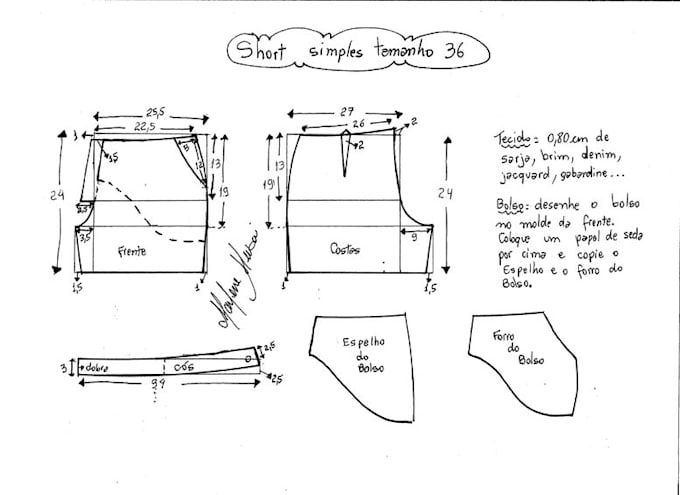 Short simples tamanho 36
25,5
22,5
1
1,5
5
12
13
19
24
2,5
3,5
Frente
1,5
1
27
26
2
2
13
19
24
Costas
9
1
1,5
Tecido = 0,80 cm de
sarja, brim, denim,
jacquard, gabardine...
Bolso: desenhe o bolso
no molde da frente.
Coloque um papel de seda
por cima e copie o
Espelho e o forro do
Bolso.
Marlene Mukai
3
dobra
cós
2,5
2,5
Espelho
do
Bolso
Forro
do
Bolso